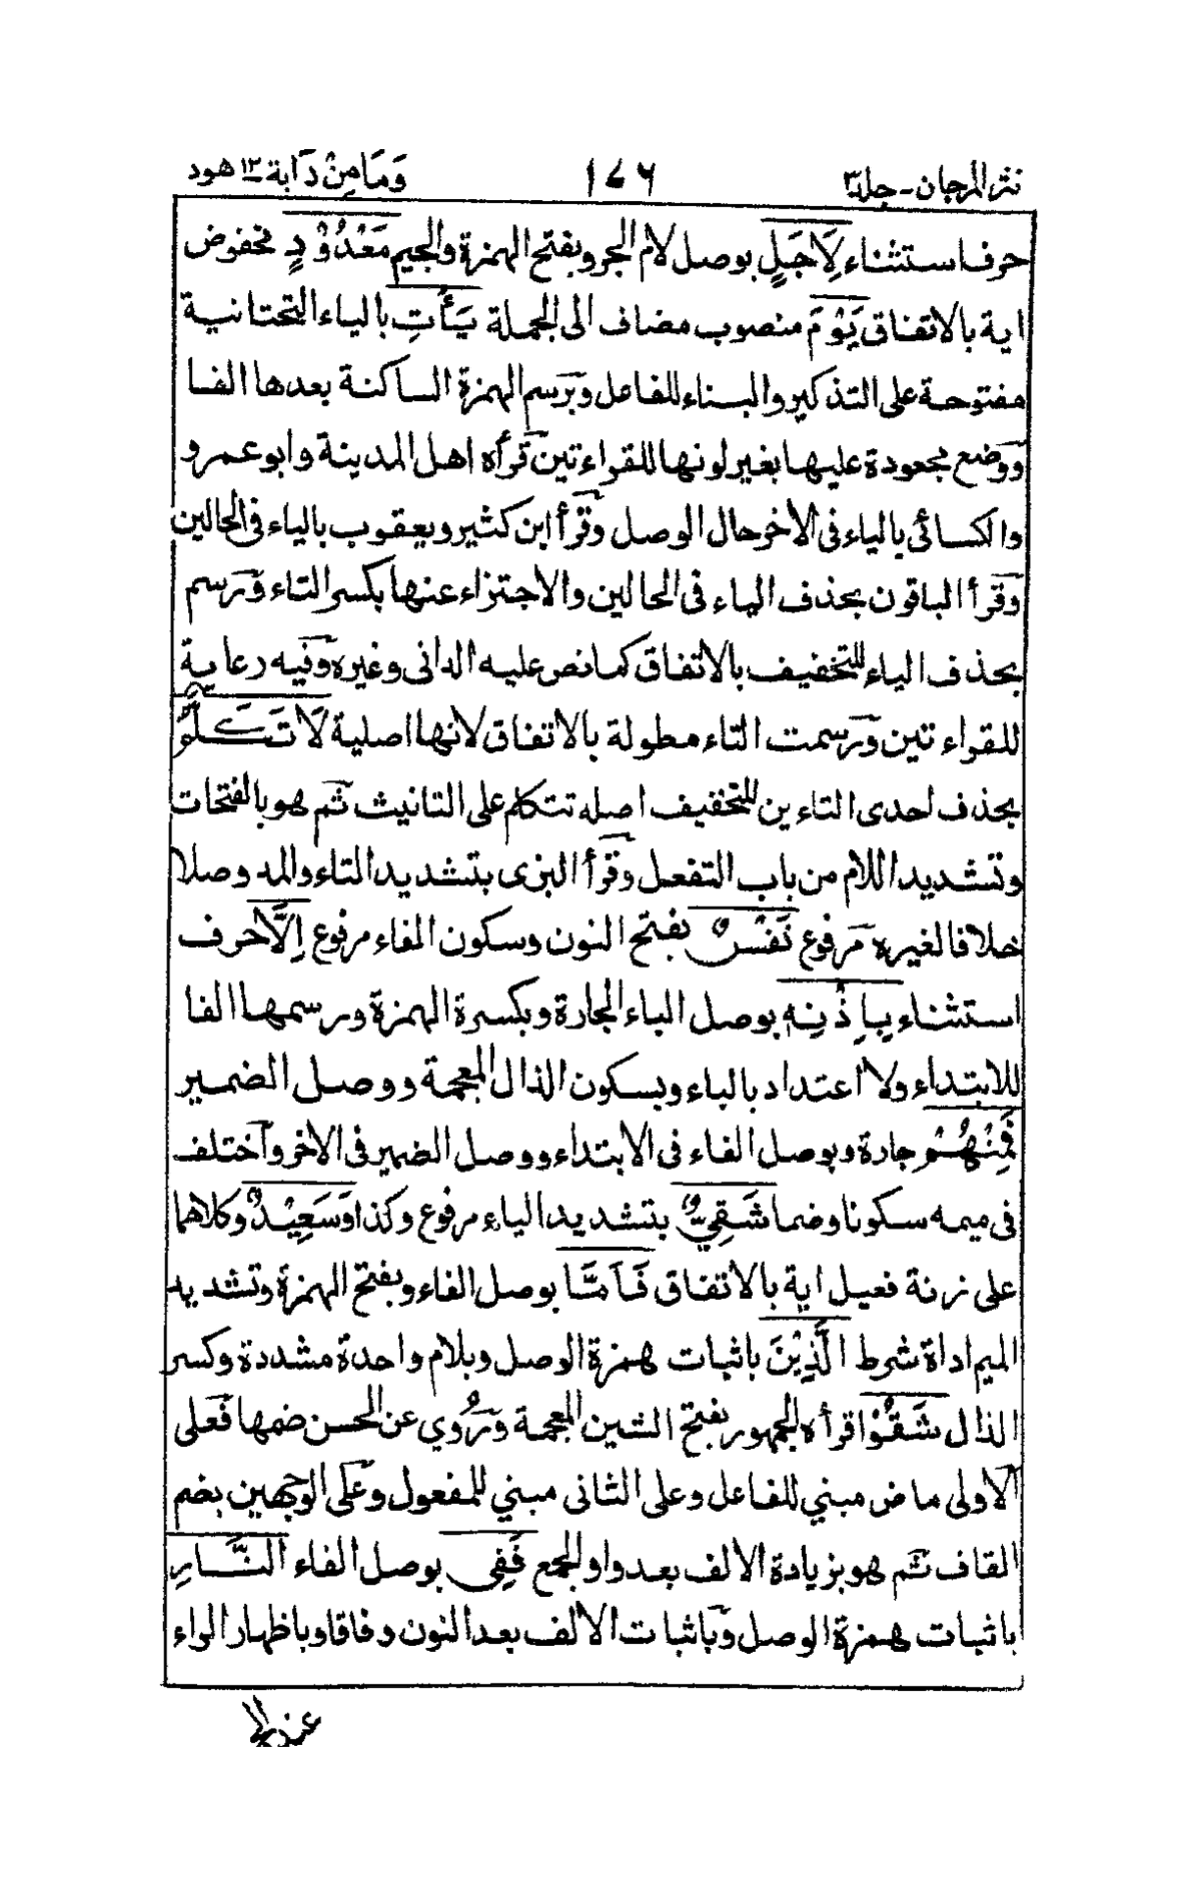 نثر المرجان - جلد ٣ ١٧٦ وَمَا مِنْ دَابة ١٢ هود
حرف استثناء لِاَجَلٍ بوصل لام الجر وبفتح الهمزة والجيم مَعْدُوْدٍ مخفوض
اية بالاتفاق يَوْمَ منصوب مضاف الى الجملة يَأْتِ بالياء التحتانية
مفتوحة على التذكير والبناء للفاعل وبرسم الهمزة الساكنة بعدها الفا
ووضع مجعودة عليها بغير لونها للقراءتين قرأه اهل المدينة وابو عمرو
والكسائى بالياء فى الاخر حال الوصل وقرأ ابن كثير ويعقوب بالياء فى الحالين
وقرأ الباقون بحذف الياء فى الحالين والاجتزاء عنها بكسر التاء ورسم
بحذف الياء للتخفيف بالاتفاق كما نص عليه الدانى وغيره وفيه رعاية
للقراءتين ورسمت التاء مطولة بالاتفاق لانها اصلية لَا تَكَلَّمُ
بحذف احدى التاءين للتخفيف اصله تتكلم على التانيث ثم هو بالفتحات
وتشديد اللام من باب التفعل وقرأ البزى بتشديد التاء والمد وصلا
خلافا لغيره مرفوع نَفْسٌ بفتح النون وسكون الفاء مرفوع اِلَّا حرف
استثناء بِاِذْنِهٖ بوصل الباء الجارة وبكسرة الهمزة ورسمها الفا
للابتداء ولا اعتداد بالباء وبسكون الذال المعجمة ووصل الضمير
فَمِنْهُمْ جارة وبوصل الفاء فى الابتداء ووصل الضمير فى الاخر واختلف
فى ميمه سكونا وضما شَقِيٌّ بتشديد الياء مرفوع وكذا وَسَعِيْدٌ وكلاهما
على زنة فعيل اية بالاتفاق فَاَمَّا بوصل الفاء وبفتح الهمزة وتشديد
الميم اداة شرط الَّذِيْنَ باثبات همزة الوصل وبلام واحدة مشددة وكسر
الذال شَقُوْا قرأه الجمهور بفتح الشين المعجمة ورُوي عن الحسن ضمها فعلى
الاولى ماض مبني للفاعل وعلى الثانى مبني للمفعول وعلى الوجهين بضم
القاف ثم هو بزيادة الالف بعد واو الجمع فَفِى بوصل الفاء النَّارِ
باثبات همزة الوصل وباثبات الالف بعد النون وفاقا وباظهار الراء